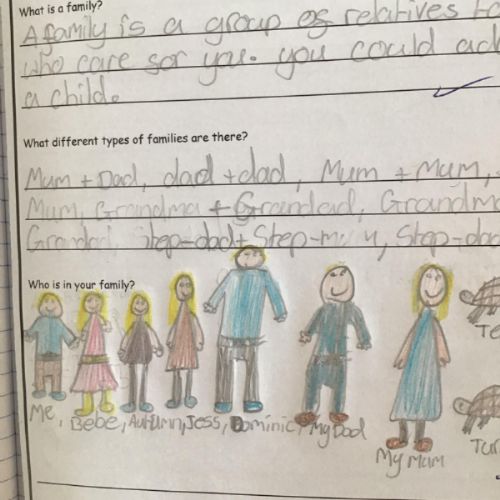 What is a family?
A family is a group of relatives
who care for you. you could
a child.
What different types of families are there?
Mum + Dad, dad + dad, Mum + Mum,
Mum, Grandma + Grandad,
Grandad, Step-dad + Step-mum,
Who is in your family?
Me, Bebe, Autumn, Jess, Dominic, My Dad
My Mum